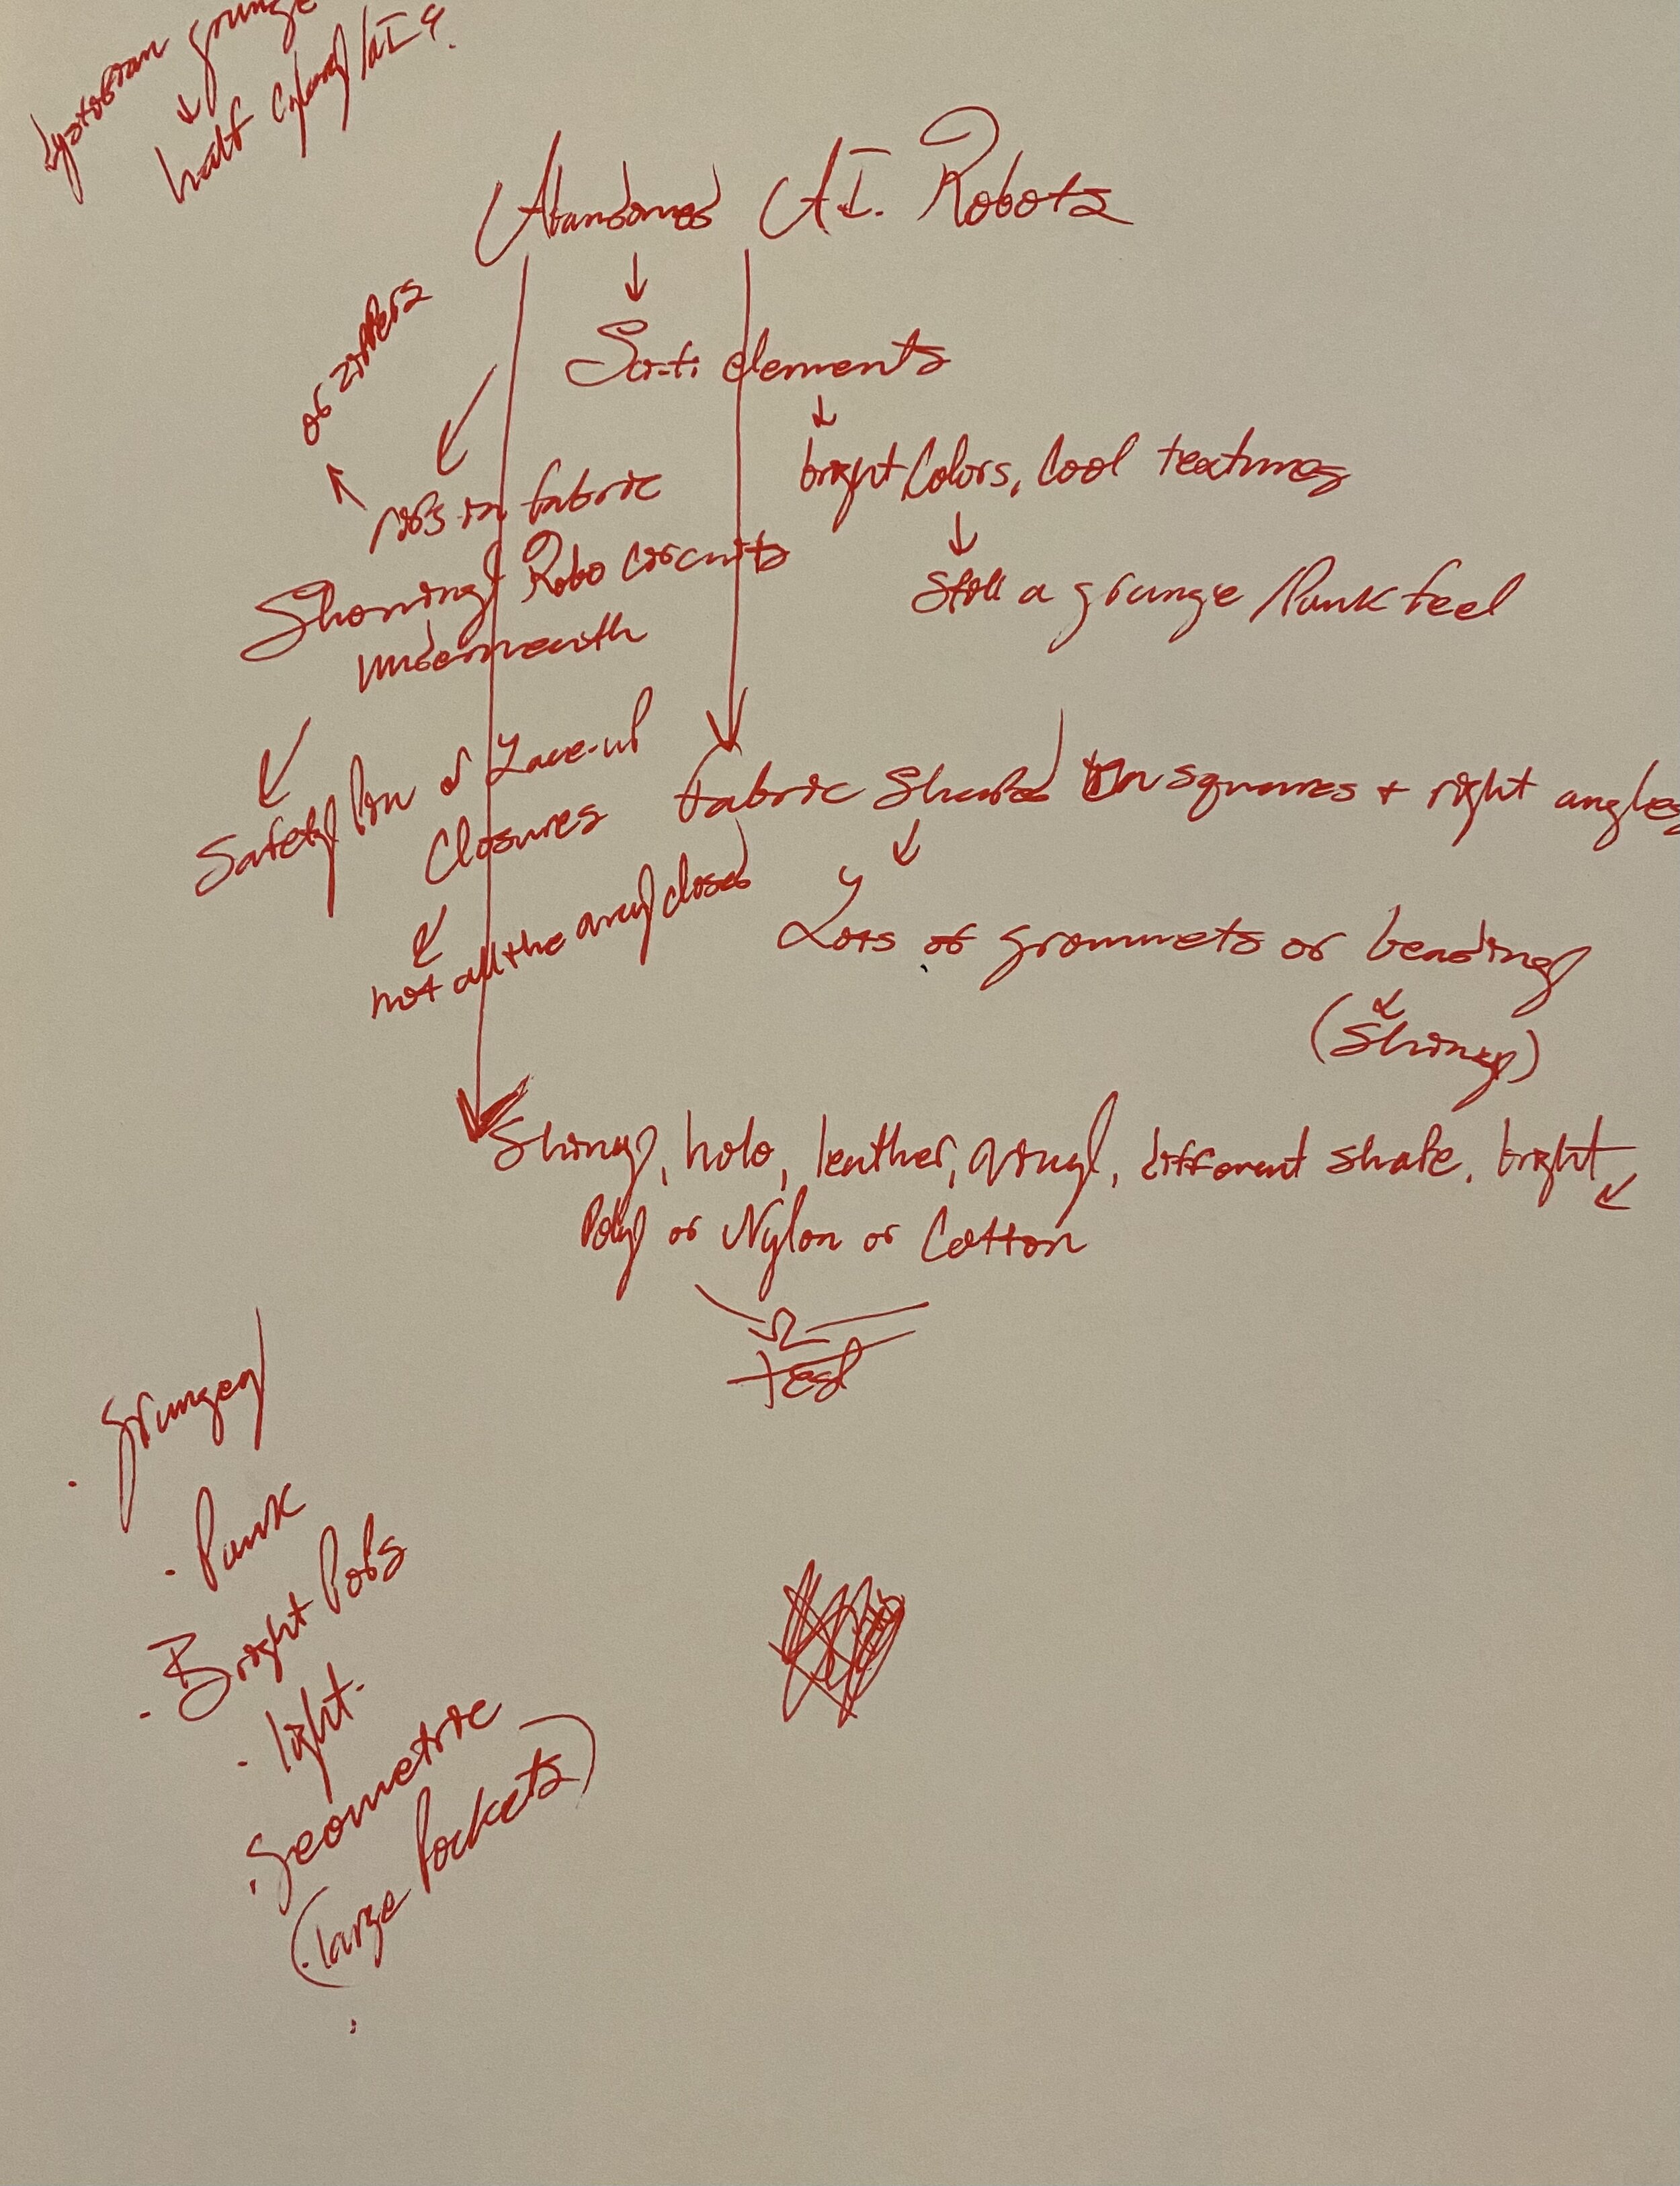 dystopian grunge
half cyborg/AI?
Abandoned A.I. Robots
Sci-fi elements
or zippers
bright Colors, Cool textures
rips in fabric
Showing Robo circuits
underneath
Still a grunge/Punk feel
Safety Pin or Lace-up
Closures
Fabric Shaped in squares + right angles
not all the way closed
Lots of grommets or beading
(Shiny)
Shiny, holo, leather, vinyl, different shape, bright
Poly or Nylon or Cotton
test
· grungey
· Punk
· Bright Pops
· light
· Geometric
(large Pockets)